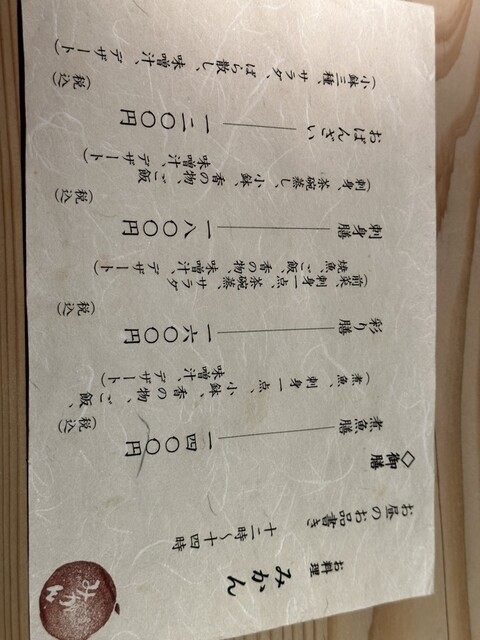 お料理
みかん
お昼のお品書き
十二時〜十四時
◇御膳
煮魚膳 一四〇〇円 (税込)
(煮魚、刺身一点、小鉢、香の物、ご飯、
味噌汁、デザート)
彩り膳 一六〇〇円 (税込)
(前菜、刺身一点、茶碗蒸、サラダ
焼魚、ご飯、香の物、味噌汁、デザート)
刺身膳 一八〇〇円 (税込)
(刺身、茶碗蒸し、小鉢、香の物、ご飯
味噌汁、デザート)
おばんざい 一二〇〇円 (税込)
(小鉢三種、サラダ、ばら散し、味噌汁、デザート)
みかん